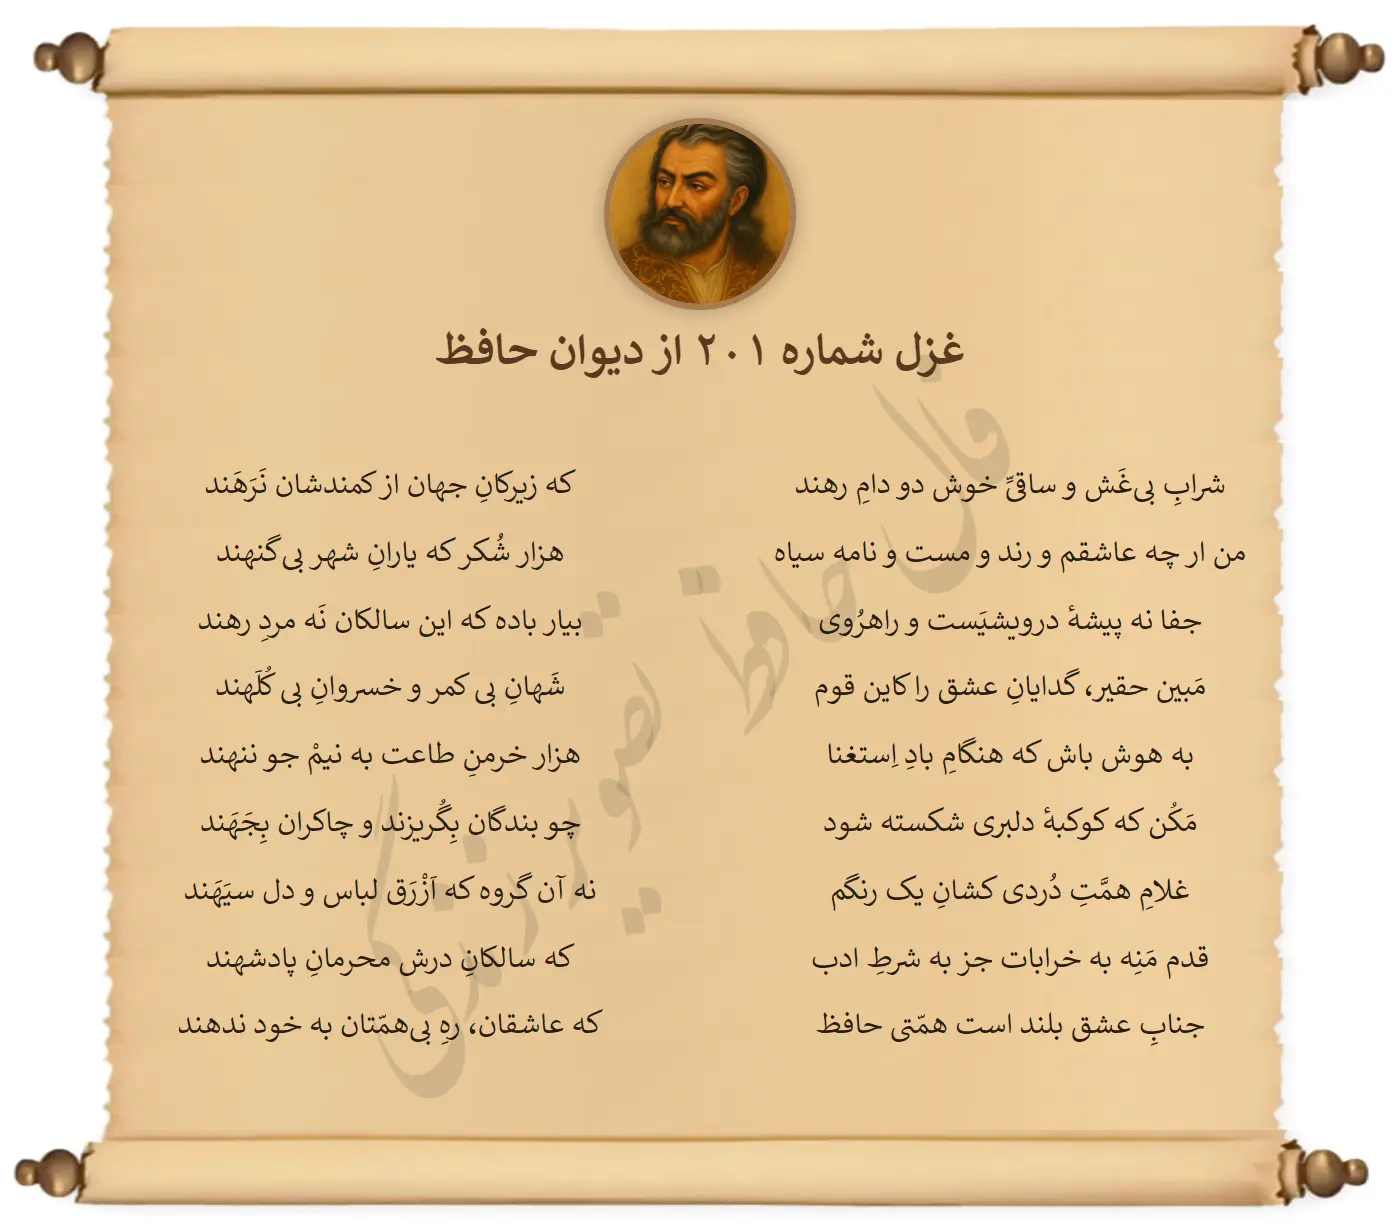 غزل شماره ۲۰۱ از دیوان حافظ
شرابِ بی‌غَش و ساقیِّ خوش دو دامِ رهند
که زیرکانِ جهان از کمندشان نَرَهَند
من ار چه عاشقم و رند و مست و نامه سیاه
هزار شُکر که یارانِ شهر بی‌گنهند
جفا نه پیشهٔ درویشیَست و راهرُوی
بیار باده که این سالکان نَه مردِ رهند
مَبین حقیر، گدایانِ عشق را کاین قوم
شَهانِ بی کمر و خسروانِ بی کُلَهند
به هوش باش که هنگامِ بادِ اِستغنا
هزار خرمنِ طاعت به نیمْ جو ننهند
مَکُن که کوکبهٔ دلبری شکسته شود
چو بندگان بِگُریزند و چاکران بِجَهَند
غلامِ همَّتِ دُردی کشانِ یک رنگم
نه آن گروه که اَزْرَق لباس و دل سیَهَند
قدم مَنِه به خرابات جز به شرطِ ادب
که سالکانِ درش محرمانِ پادشهند
جنابِ عشق بلند است همّتی حافظ
که عاشقان، رهِ بی‌همّتان به خود ندهند
فال حافظ تصویر زندگی